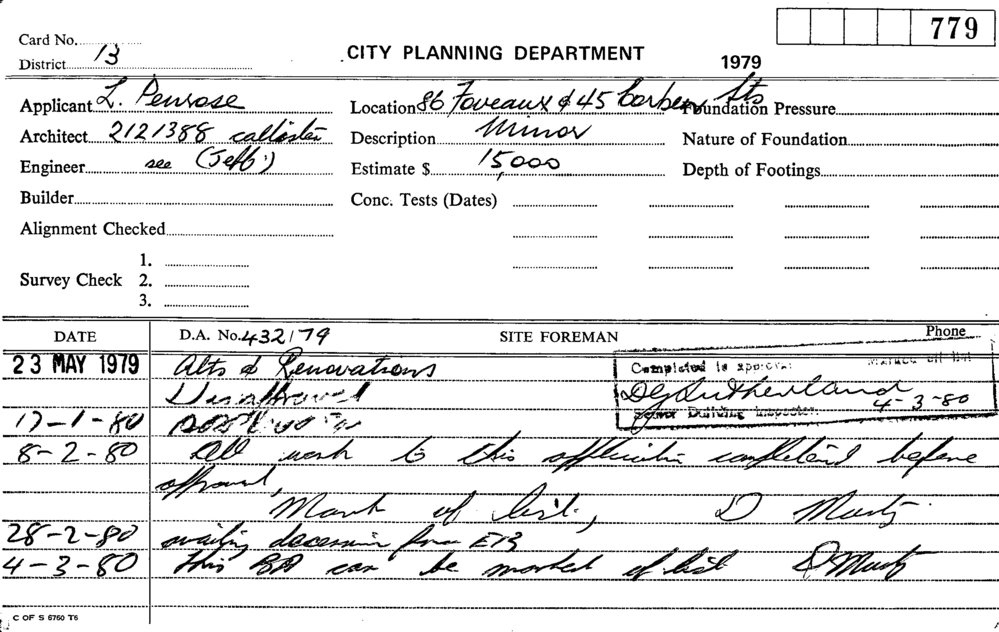 779
Card No.
District 13
CITY PLANNING DEPARTMENT
1979
Applicant L. Penrose
Location 86 Foveaux & 45 Corben Sts
Foundation Pressure
Architect 2121388 callisten
Description Minor
Nature of Foundation
Engineer see (Jeff.)
Estimate $ 15,000
Depth of Footings
Builder
Conc. Tests (Dates)
Alignment Checked
Survey Check 1.
2.
3.
DATE D.A. No. 432/79 SITE FOREMAN Phone
23 MAY 1979 Alts & Renovations
Completed is approval Marked off list
DG Sutherland
4-3-80
Senior Building Inspector
17-1-80
8-2-80 All work to this application completed before
approval,
Mark of list, D Murty
28-2-80 waiting decession from ETB
4-3-80 This BA can be marked of list D Murty
C OF S 5760 T6